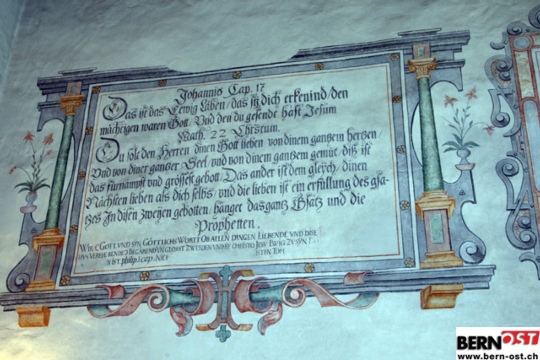 Johannis Cap. 17
Das ist das Ewig Läben / das sÿ dich erkenind / den
mächtigen waren Gott. Und den du gesendt hast Jesum
Math. 22 Christum.
Du solt den Herren dinen Gott lieben von dinem gantzem hertzen
Und von diner gantzer Seel und von dinem gantzem gemüt, diß ist
das fürnämpst und grössest gebott. Das ander ist dem glÿch, dinen
Nächsten lieben als dich selbs, und die lieben ist ein erfüllung des gsa-
tzes In disen zweÿen gebotten, hanget das gantz Gsatz und die
Prophetten.
Wer Gott und sÿn Göttlichs Wort Ob allen dingen Liebende und
Ewig
BERNOST
www.bern-ost.ch